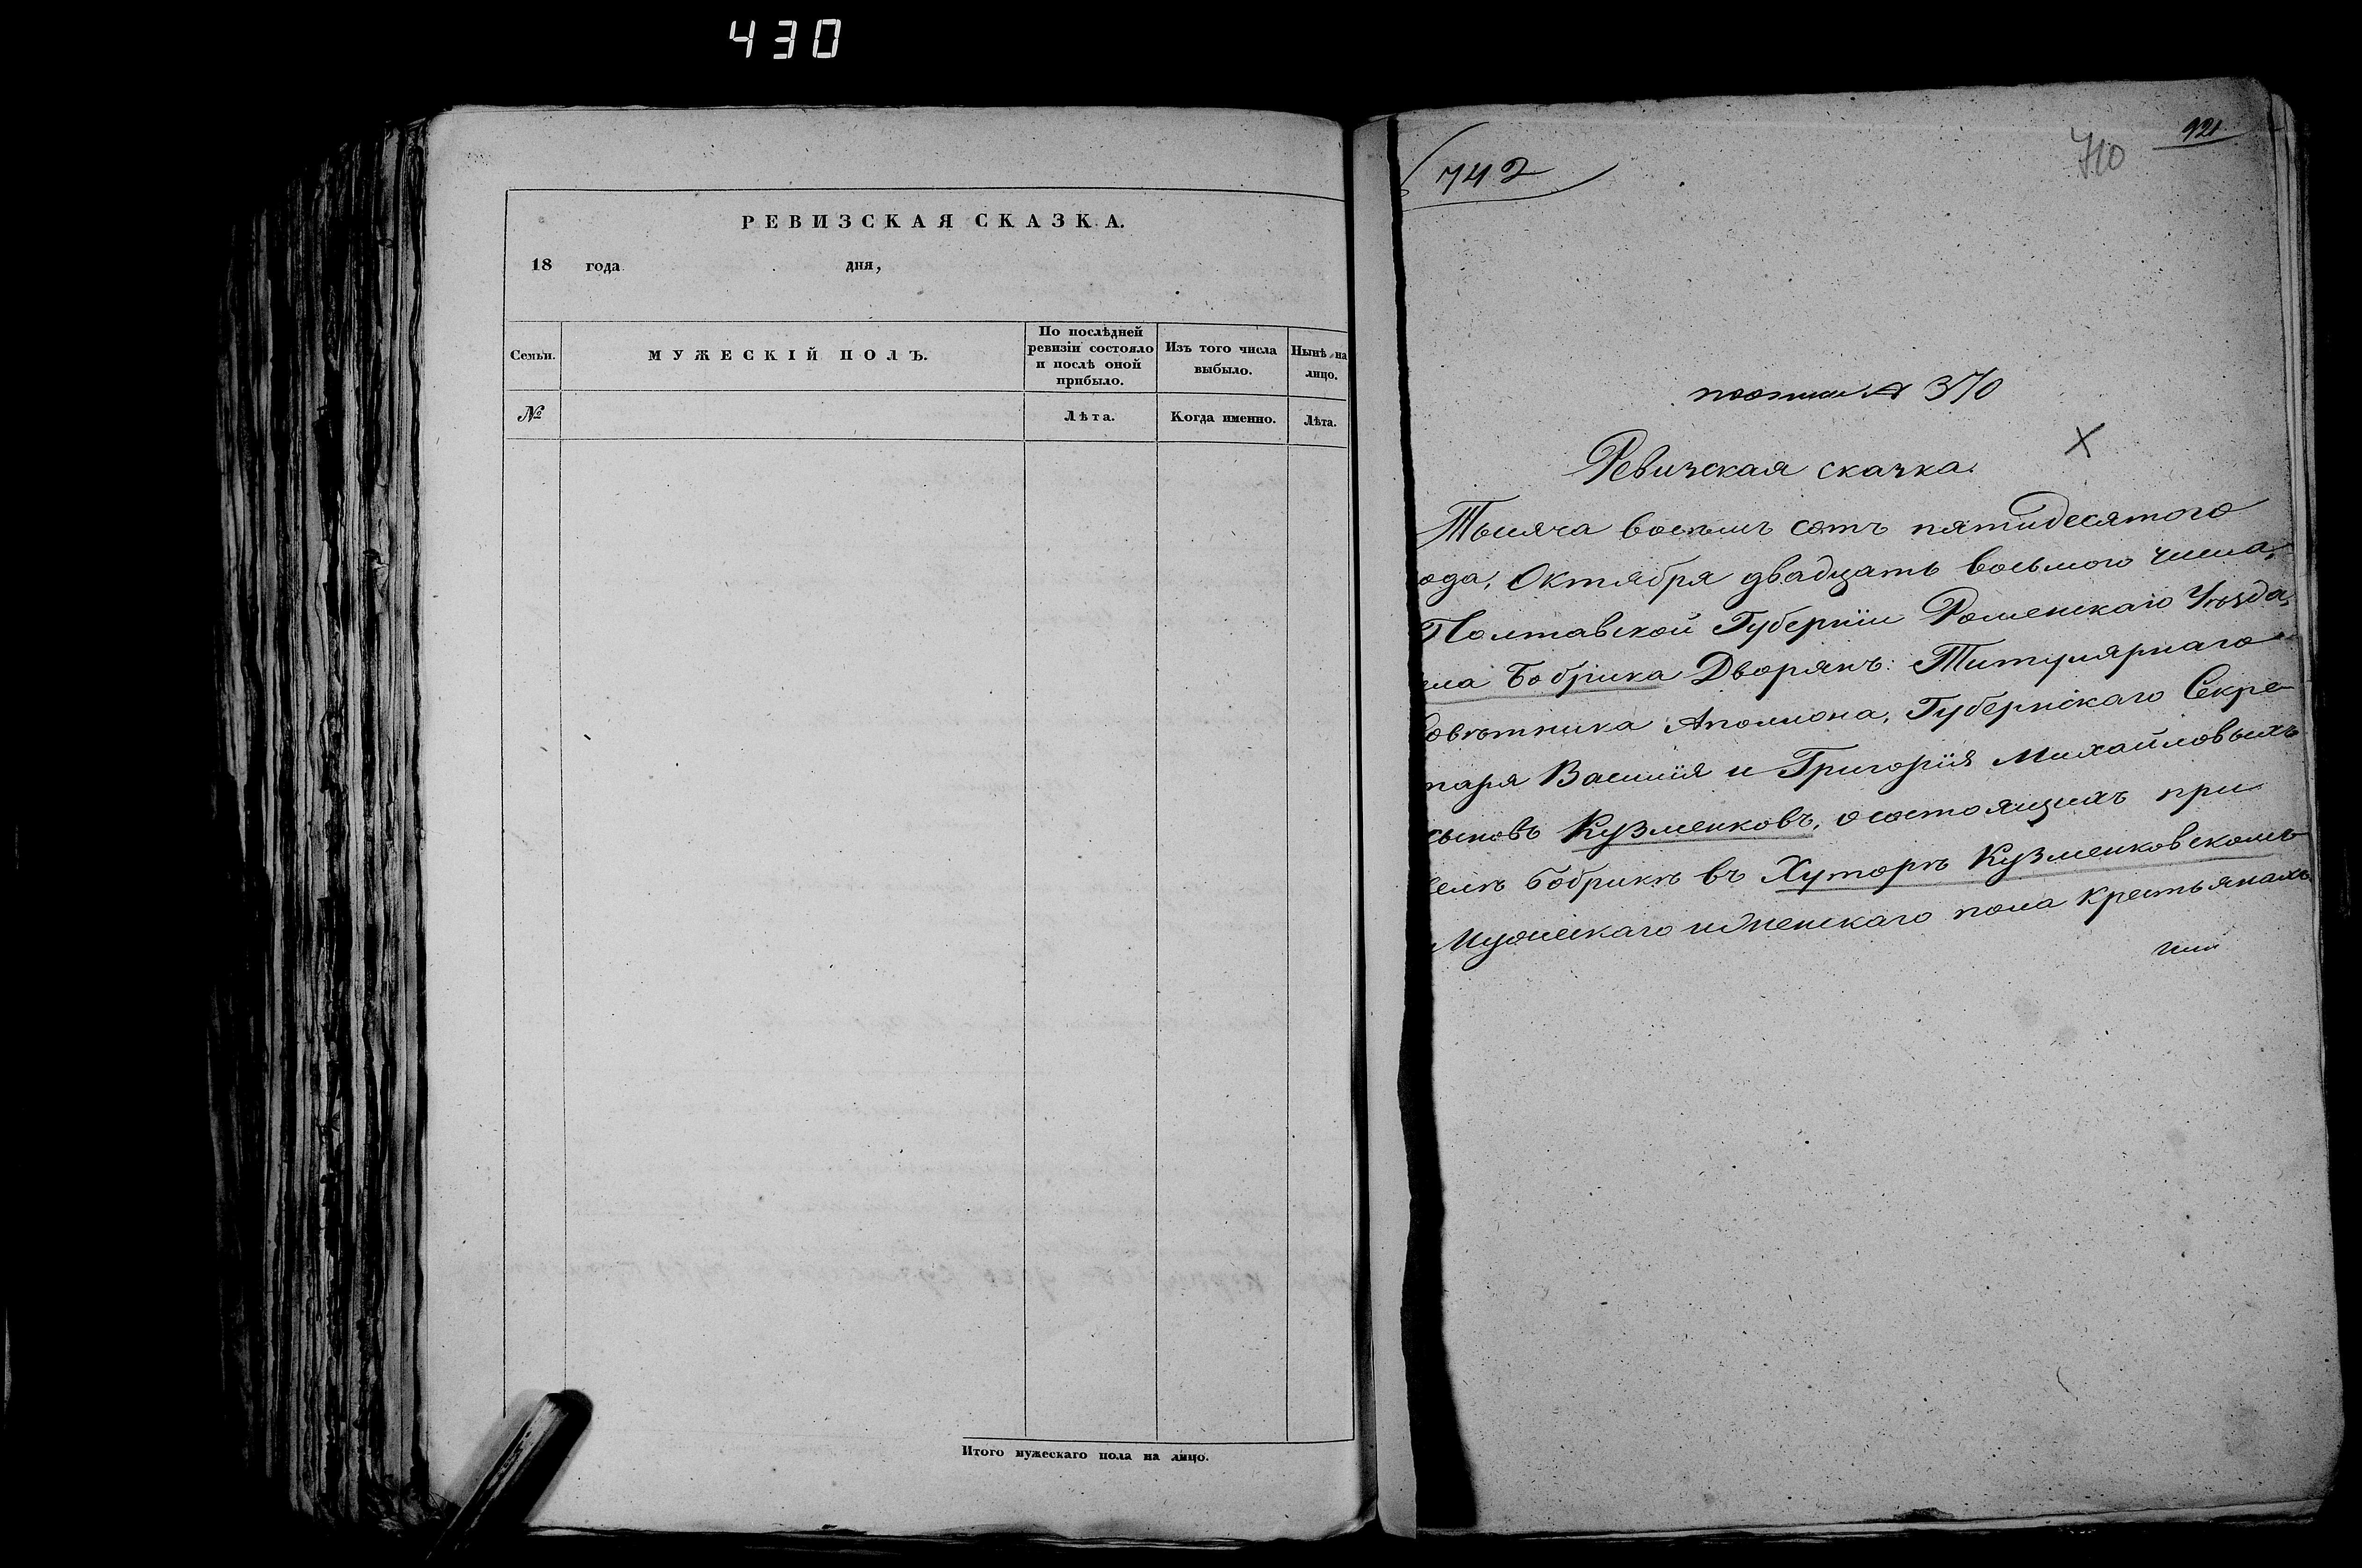 430
РЕВИЗСКАЯ СКАЗКА.
18 года дня,
Семьи.
МУЖЕСКІЙ ПОЛЪ.
По послѣдней
ревизіи состояло
и послѣ оной
прибыло.
Изъ того числа
выбыло.
Нынѣ на
лицо.
№
Лѣта.
Когда именно.
Лѣта.
Итого мужескаго пола на лицо.
742
710
921
370
Ревизская сказка.
Тысяча восемь сотъ пятидесятого
ода, Октября двадцать восьмого числа,
Полтавской Губерніи Роменскаго Уѣзда,
ела Бобрика Дворянъ: Титулярнаго
Совѣтника Аполлона, Губернскаго Секре-
таря Василія и Григорія Михайловыхъ
сыновъ Кузменковъ, о состоящихъ при
селѣ Бобрикѣ въ Хуторѣ Кузменковскомъ
Мужескаго и Женскаго пола Крестьянахъ